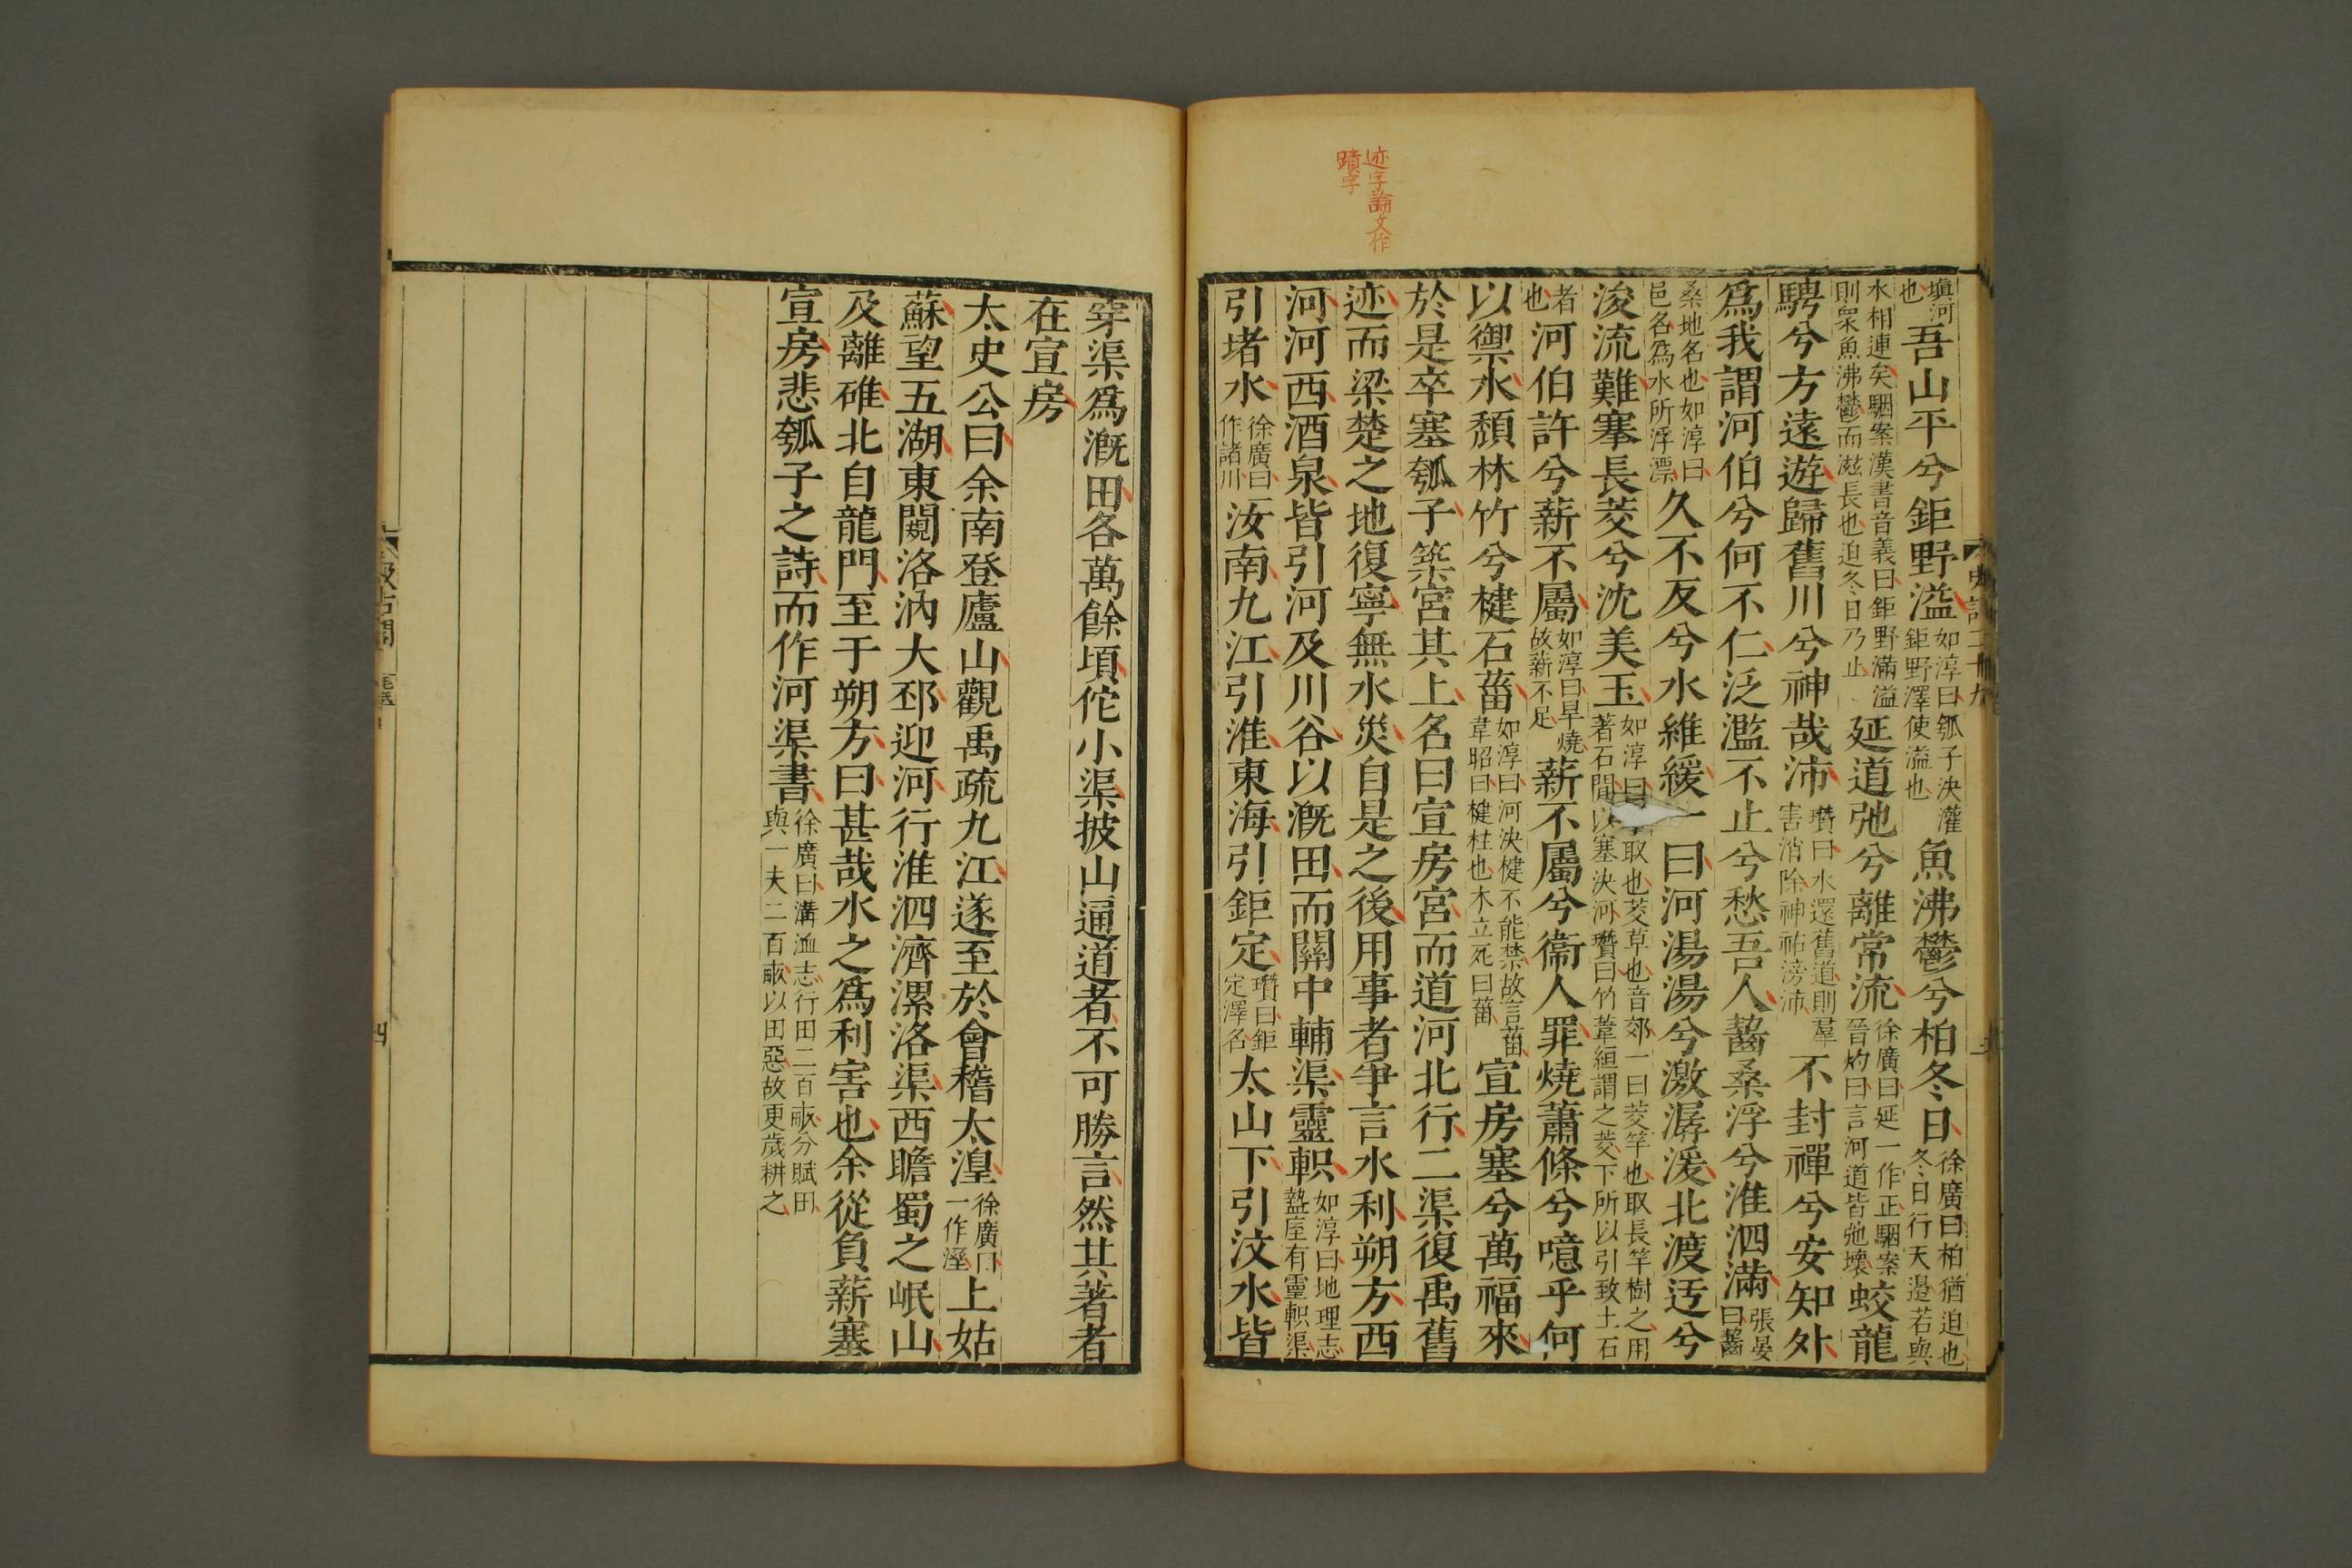 迹字論文作
蹟字
塡河也吾山平兮鉅野溢如淳曰瓠子決灌鉅野澤使溢也魚沸鬱兮柏冬日徐廣曰柏猶迫也冬日行天邊若與
水相連矣駰案漢書音義曰鉅野滿溢則衆魚沸鬱而滋長也迫冬日乃止延道弛兮離常流徐廣曰延一作正駰案晉灼曰言河道皆弛壞蛟龍
騁兮方遠遊歸舊川兮神哉沛瓚曰水還舊道則羣害消除神祐滂沛不封禪兮安知外
爲我謂河伯兮何不仁泛濫不止兮愁吾人齧桑浮兮淮泗滿張晏曰齧
桑地名也如淳曰邑名爲水所浮漂久不反兮水維緩一曰河湯湯兮激潺湲北渡迃兮
浚流難搴長茭兮沈美玉如淳曰取也茭草也音郊一曰茭竿也取長竿樹之用著石閒以塞決河瓚曰竹葦絙謂之茭下所以引致土石
者也河伯許兮薪不屬如淳曰旱燒故薪不足薪不屬兮衞人罪燒蕭條兮噫乎何
以禦水頹林竹兮楗石菑如淳曰河決楗不能禁故言菑韋昭曰楗柱也木立死曰菑宣房塞兮萬福來
於是卒塞瓠子築宮其上名曰宣房宮而道河北行二渠復禹舊
迹而梁楚之地復寧無水災自是之後用事者爭言水利朔方西
河河西酒泉皆引河及川谷以溉田而關中輔渠靈軹如淳曰地理志盩厔有靈軹渠
引堵水徐廣曰一作諸川汝南九江引淮東海引鉅定瓚曰鉅定澤名太山下引汶水皆
穿渠爲溉田各萬餘頃佗小渠披山通道者不可勝言然其著者
在宣房
太史公曰余南登廬山觀禹疏九江遂至於會稽太湟徐廣曰一作濕上姑
蘇望五湖東闚洛汭大邳迎河行淮泗濟漯洛渠西瞻蜀之岷山
及離碓北自龍門至于朔方曰甚哉水之爲利害也余從負薪塞
宣房悲瓠子之詩而作河渠書徐廣曰溝洫志行田二百畝分賦田與一夫二百畝以田惡故更歲耕之